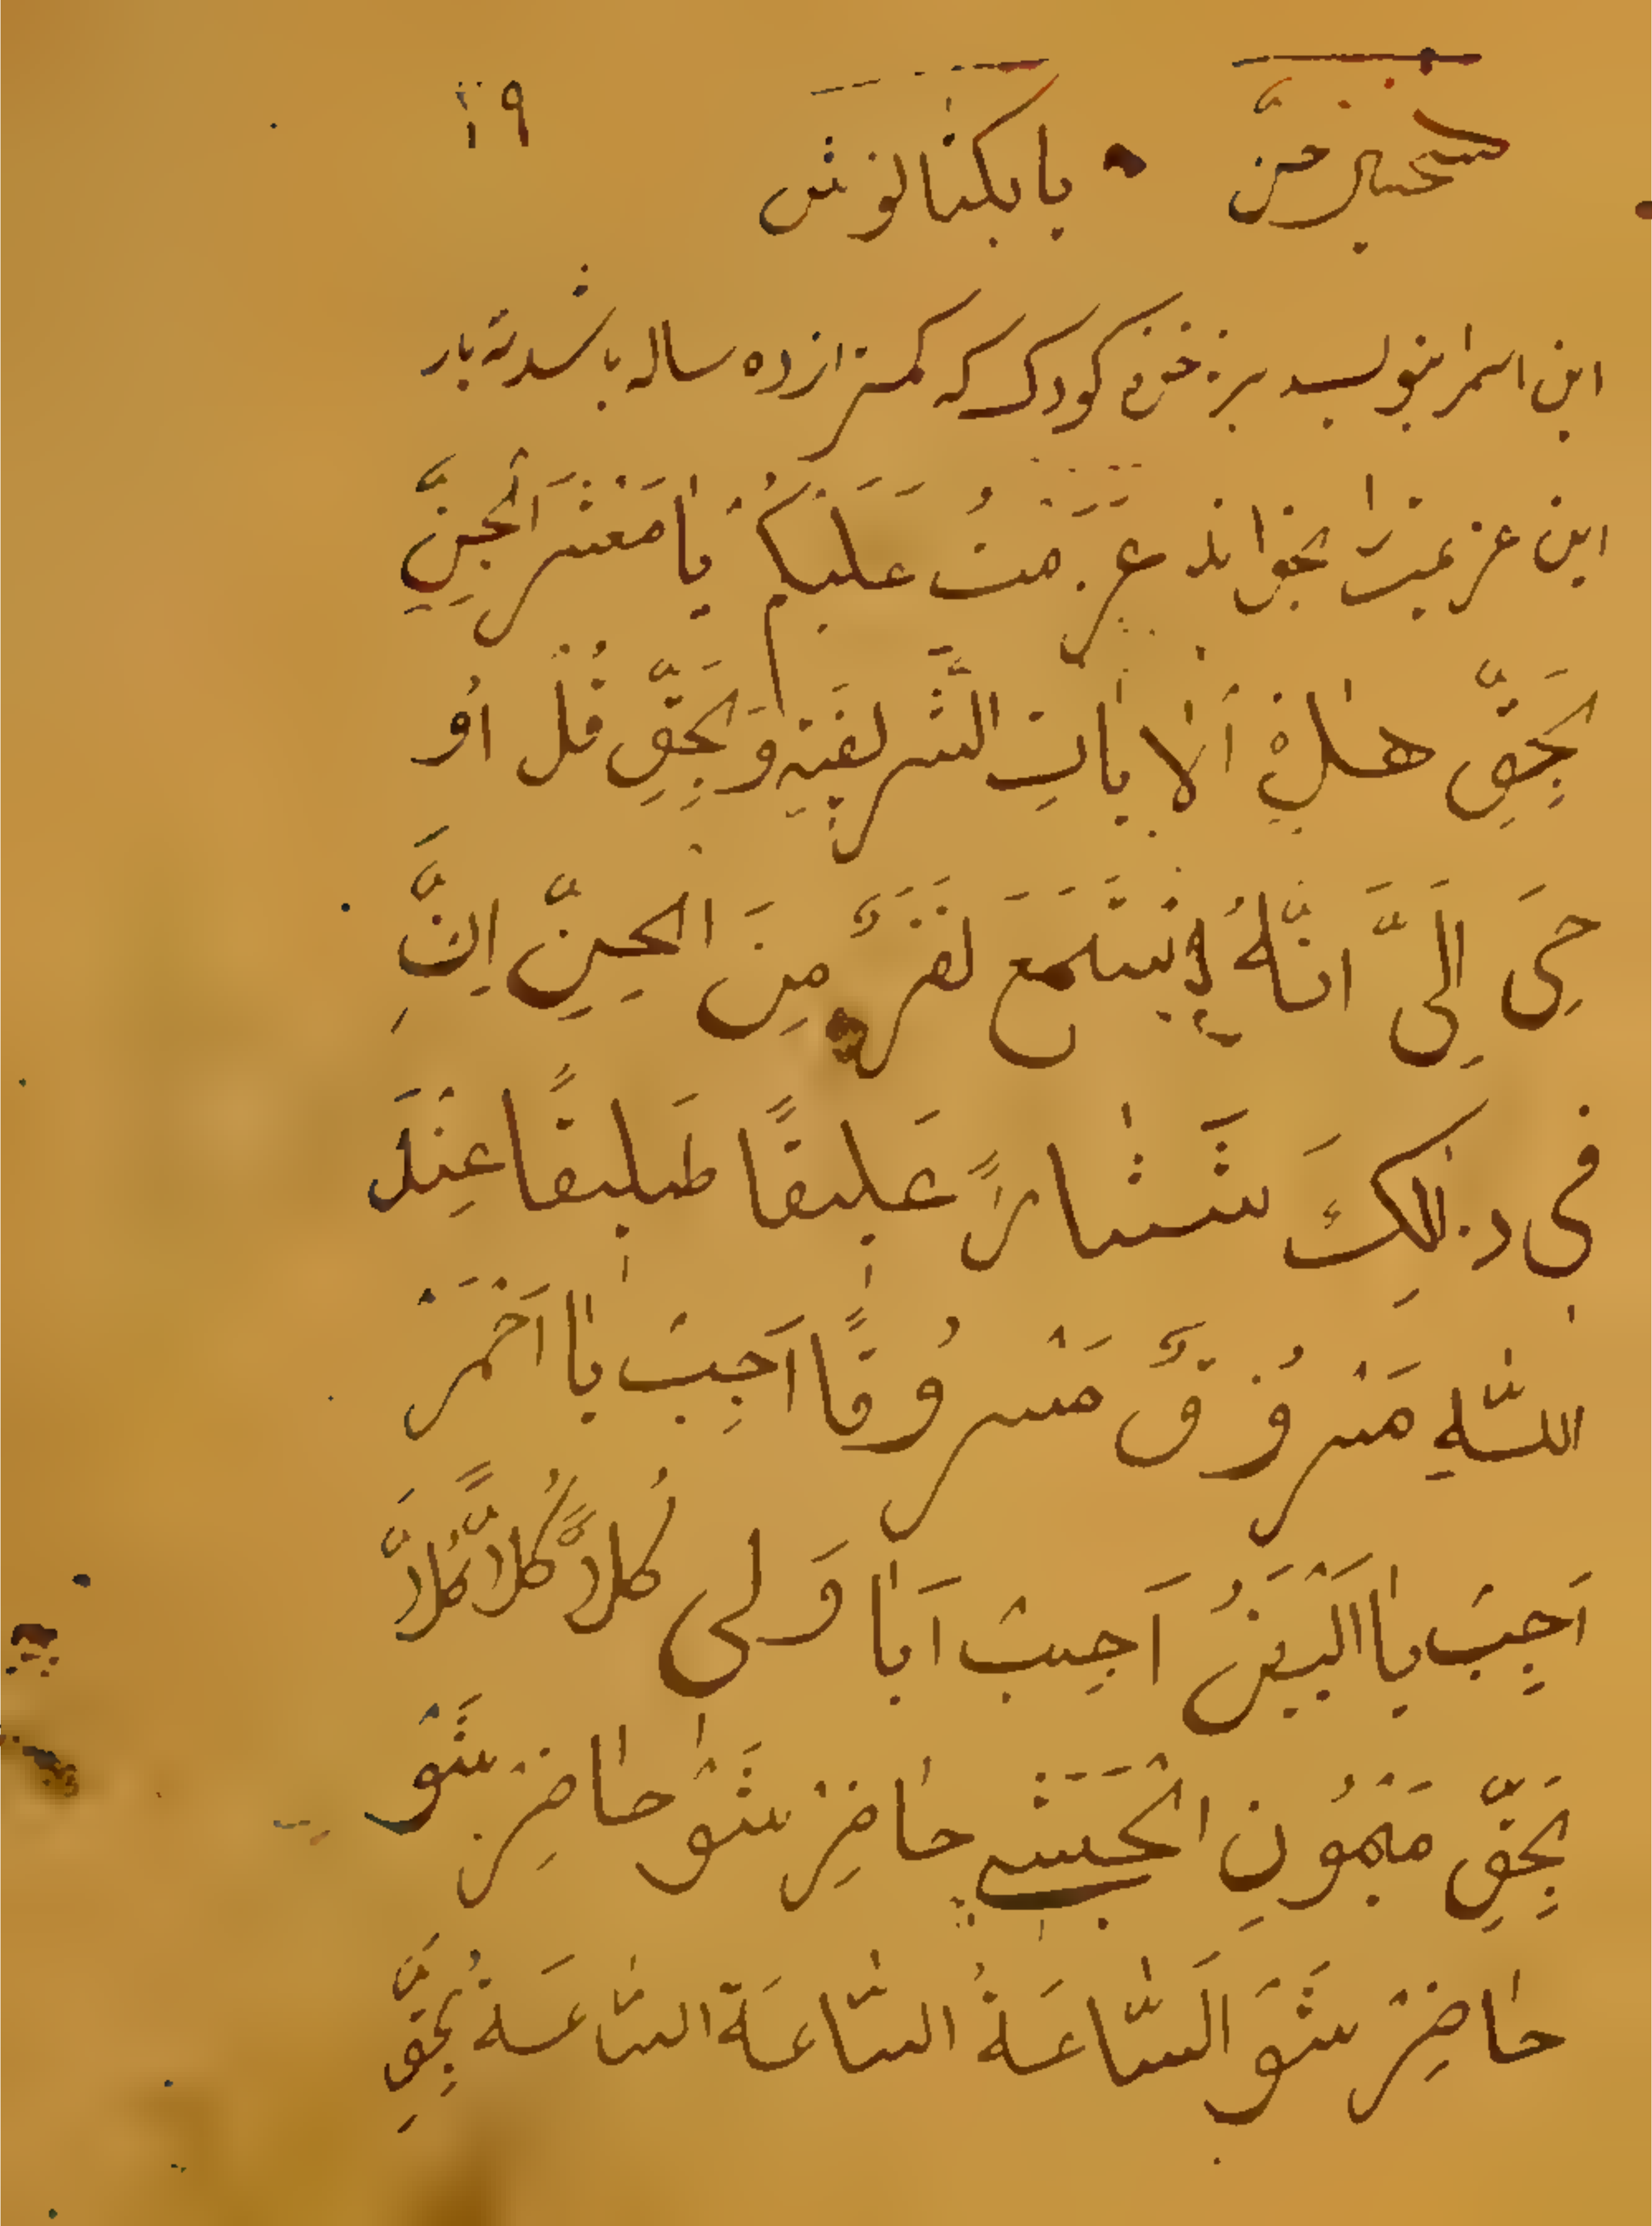 تسخیر جن • یا بکتانوش ۱۹
این اسم را بنویسد بر ناخن کودک که کمتر از ده ساله باشد سه بار
این عزیمت را بخواند عَزَمْتُ عَلَیْکُمْ یا مَعْشَرَ الْجِنِّ
بِحَقِّ هٰذِهِ الْاٰیاتِ الشَّریفَةِ وَ بِحَقِّ قُلْ اُو
حِیَ اِلَیَّ اَنَّهُ اسْتَمَعَ نَفَرٌ مِنَ الْجِنِّ اِنَّ
فی ذٰلِکَ عَلیقًا طَلیقًا عِنْدَ
اللّٰهِ مَسْرُوقًا اَجِبْ یا اَحْمَرْ
اَجِبْ یا اَبْیَضُ اَجِبْ کُلاًّ کُلاًّ
بِحَقِّ مَیْمُونِ الْحَبَشی حاضِرْ شَوْ حاضِرْ شَوْ
حاضِرْ شَوْ اَلسّاعَةُ السّاعَةَ السّاعَةُ بِحَقِّ